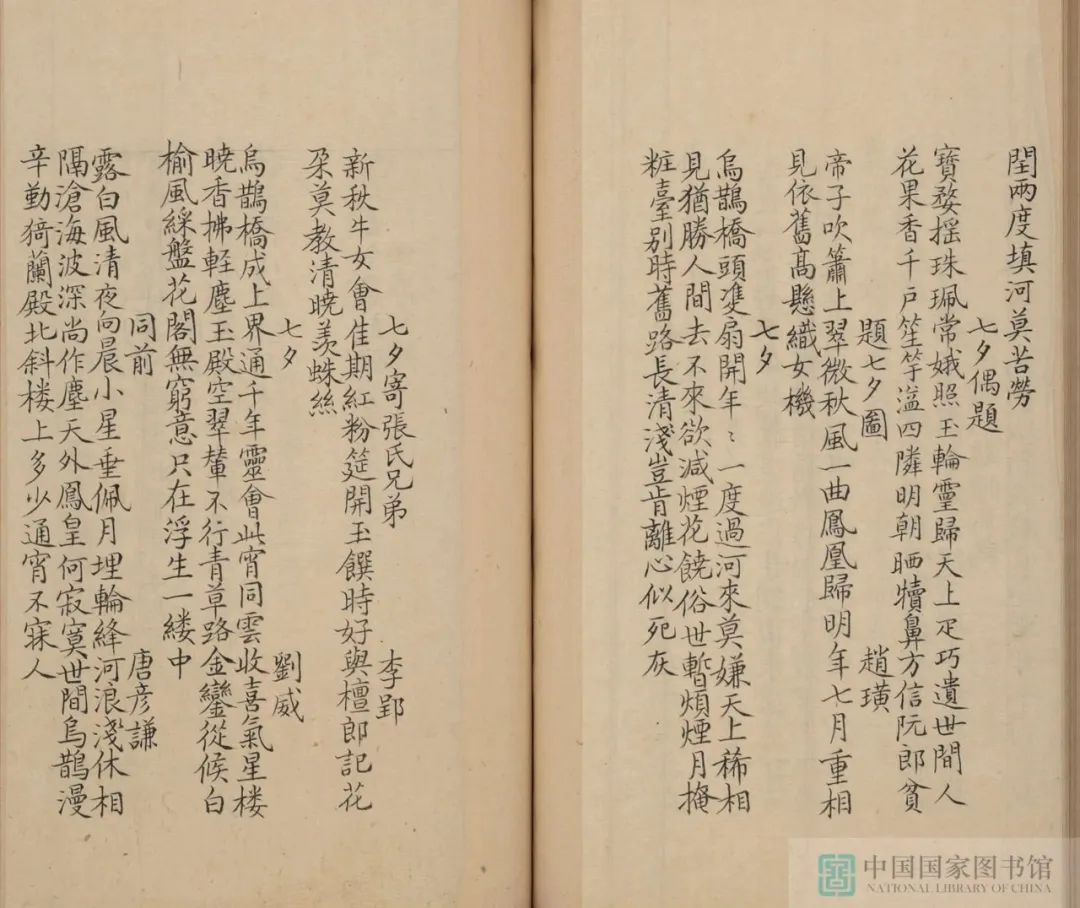 閏兩度填河莫苦勞
七夕偶題
寶婺揺珠珮常娥照玉輪靈歸天上疋巧遺世間人
花果香千戸笙竽溢四隣明朝晒犢鼻方信阮郎貧
題七夕圖 趙璜
帝子吹簫上翠微秋風一曲鳳凰歸明年七月重相
見依舊髙懸織女機
七夕
烏鵲橋頭𩀱扇開年〻一度過河來莫嫌天上稀相
見猶勝人間去不來欲減煙花饒俗世暫煩煙月掩
粧臺别時舊路長清淺豈肯離心似死灰
七夕寄張氏兄弟 李郢
新秋牛女會佳期紅粉筵開玉饌時好與檀郎記花
朶莫教清曉羡蛛絲
七夕 劉威
烏鵲橋成上界通千年靈會此宵同雲收喜氣星楼
曉香拂軽塵玉殿空翠輦不行青草路金鑾從候白
榆風綵盤花閣無窮意只在浮生一縷中
同前 唐彦謙
露白風清夜向晨小星垂佩月埋輪絳河浪淺休相
隔滄海波深尚作塵天外鳳皇何寂寞世間烏鵲漫
辛勤猗蘭殿北斜楼上多少通宵不寐人
中国国家图书馆
NATIONAL LIBRARY OF CHINA